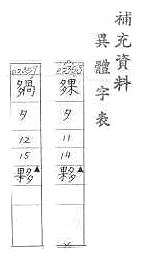 補充資料
異體字表
02358
夕
11
14
夥▲
02359
夕
12
15
夥▲